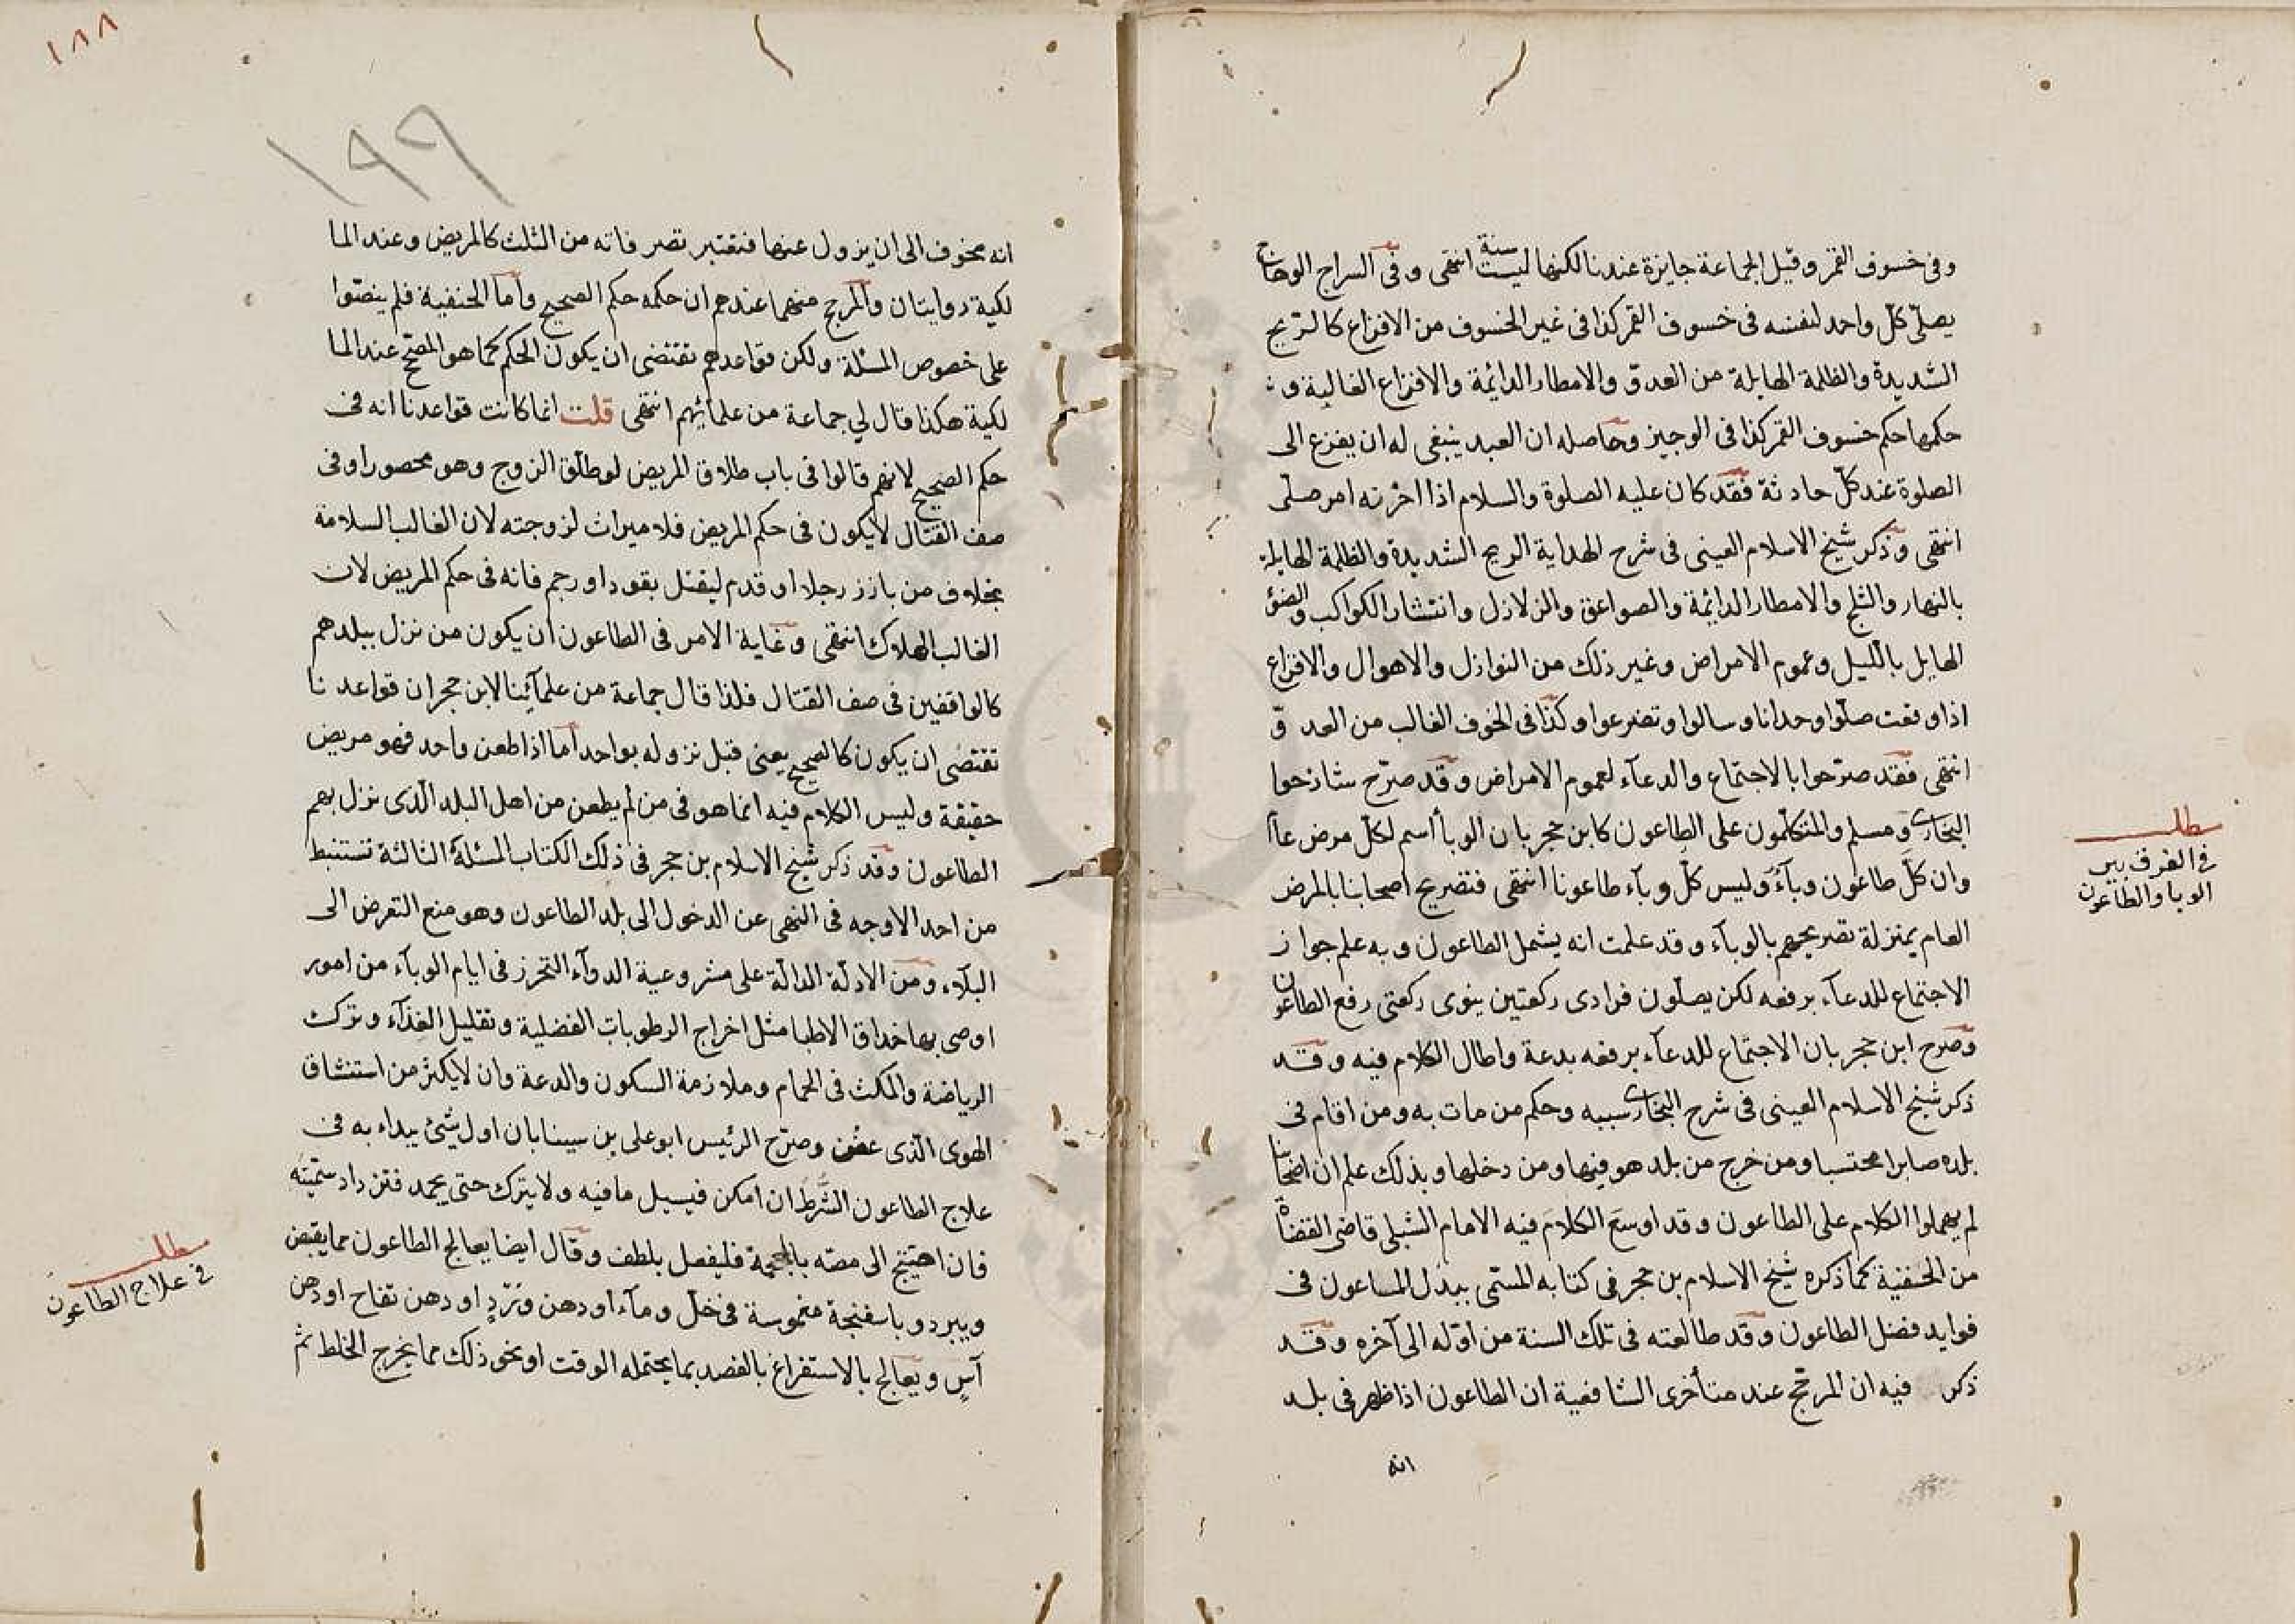 وفى خسوف القمر وقيل الجماعة جايزة عندنا لكنها ليست سنة انتهى وفى السراج الوهاج
يصلّى كلّ واحد لنفسه فى خسوف القمر كذا فى غير الخسوف من الافزاع كالريح
الشديدة والظلمة الهايلة من العدوّ والامطار الدائمة والافزاع الغالبة و
حكمها حكم خسوف القمر كذا فى الوجيز وحاصله ان العبد ينبغى له ان يفزع الى
الصلوة عند كلّ حادثة فقد كان عليه الصلوة والسلام اذا احزنه امر صلّى
انتهى وذكر شيخ الاسلام العينى فى شرح الهداية الريح الشديدة والظلمة الهايلة
بالنهار والثلج والامطار الدائمة والصواعق والزلازل وانتشار الكواكب والضوء
الهايل بالليل وعموم الامراض وغير ذلك من النوازل والاهوال والافزاع
اذا وقعت صلّوا وحدانا وسالوا وتضرعوا وكذا فى الخوف الغالب من العدوّ
انتهى فقد صرّحوا بالاجتماع والدعآء لعموم الامراض وقد صرّح شارحوا
البخارى ومسلم والمتكلّمون على الطاعون كابن حجر بان الوبأ اسم لكلّ مرض عام
وان كلّ طاعون وبآء وليس كلّ وبآء طاعونا انتهى فتصريح اصحابنا بالمرض
العام بمنزلة تصريحهم بالوبآء وقد علمت انه يشمل الطاعون وبه علم جواز
الاجتماع للدعآء برفعه لكن يصلّون فرادى ركعتين ينوى ركعتى رفع الطاعون
وصرح ابن حجر بان الاجتماع للدعآء برفعه بدعة واطال الكلام فيه وقد
ذكر شيخ الاسلام العينى فى شرح البخارى سببه وحكم من مات به ومن اقام فى
بلده صابرا محتسبا ومن خرج من بلد هو فيها ومن دخلها وبذلك علم ان اصحابنا
لم يهملوا الكلام على الطاعون وقد اوسع الكلام فيه الامام الشبلى قاضى القضاة
من الحنفية كما ذكره شيخ الاسلام بن حجر فى كتابه المسمّى ببذل الماعون فى
فوايد فضل الطاعون وقد طالعته فى تلك السنة من اوّله الى آخره وقد
ذكر فيه ان المرجّح عند متأخرى الشافعية ان الطاعون اذا ظهر فى بلد
انه
مطلب
فى الفرق بين
الوبا والطاعون
١٨٨
١٩٩
انه مخوف الى ان يزول عنها فتعتبر تصرفاته من الثلث كالمريض وعند الما
لكية روايتان والمرجح منهما عندهم ان حكمه حكم الصحيح وأما الحنفية فلم ينصّوا
على خصوص المسئلة ولكن قواعدهم تقتضى ان يكون الحكم كما هو المصحّح عند الما
لكية هكذا قال لي جماعة من علمائهم انتهى قلت انما كانت قواعدنا انه فى
حكم الصحيح لانهم قالوا فى باب طلاق المريض لو طلّق الزوج وهو محصور او فى
صف القتال لا يكون فى حكم المريض فلا ميراث لزوجته لان الغالب السلامة
بخلاف من بارز رجلا او قدم ليقتل بقود او رجم فانه فى حكم المريض لان
الغالب الهلاك انتهى وغاية الامر فى الطاعون ان يكون من نزل ببلدهم
كالواقفين فى صف القتال فلذا قال جماعة من علمآئنا لابن حجر ان قواعدنا
تقتضى ان يكون كالصحيح يعنى قبل نزوله بواحد أما اذا طعن واحد فهو مريض
حقيقة وليس الكلام فيه انما هو فى من لم يطعن من اهل البلد الّذى نزل بهم
الطاعون وقد ذكر شيخ الاسلام بن حجر فى ذلك الكتاب المسئلة الثالثة تستنبط
من احد الاوجه فى النهى عن الدخول الى بلد الطاعون وهو منع التعرض الى
البلآء ومن الادلّة الدالّة على مشروعية الدوآء التحرز فى ايام الوبآء من امور
اوصى بها حذاق الاطبا مثل اخراج الرطوبات الفضلية وتقليل الغذآء وترك
الرياضة والمكث فى الحمام وملازمة السكون والدعة وان لا يكثر من استنشاق
الهوى الّذى عفن وصرّح الرئيس ابو على بن سينا بان اول شئ يبداء به فى
علاج الطاعون الشرط ان امكن فيسيل ما فيه ولا يترك حتى يجمد فتزداد سمّيته
فان احتيج الى مصّه بالمحجمة فليفعل بلطف وقال ايضا يعالج الطاعون مما يقبض
ويبرد وباسفنجة مغموسة فى خلّ ومآء او دهن ورد او دهن تفاح او دهن
آس ويعالج بالاستفراغ بالفصد بما يحتمله الوقت او نحو ذلك مما يخرج الخلط ثم
مطلب
فى علاج الطاعون